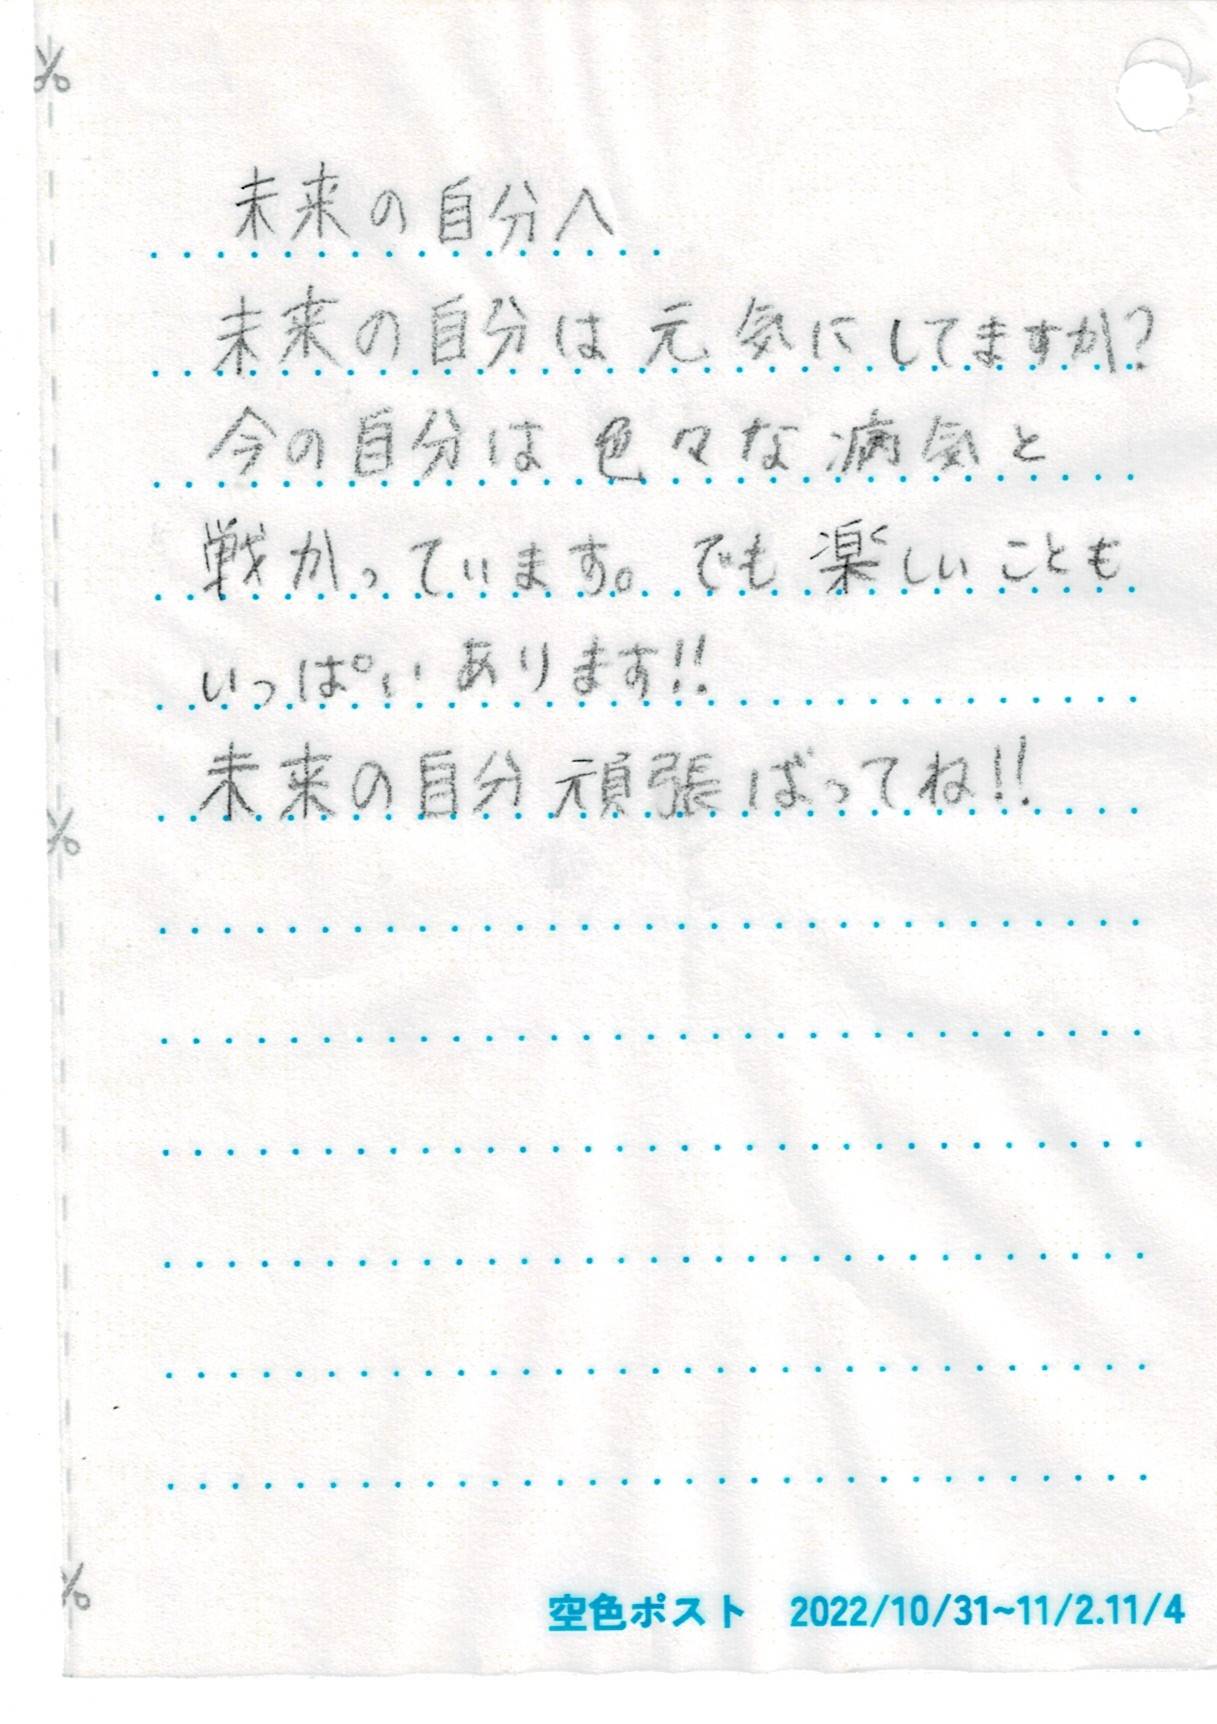 未来の自分へ
未来の自分は元気にしてますか?
今の自分は色々な病気と
戦かっています。でも楽しいことも
いっぱいあります!!
未来の自分頑張ばってね!!
空色ポスト 2022/10/31~11/2.11/4